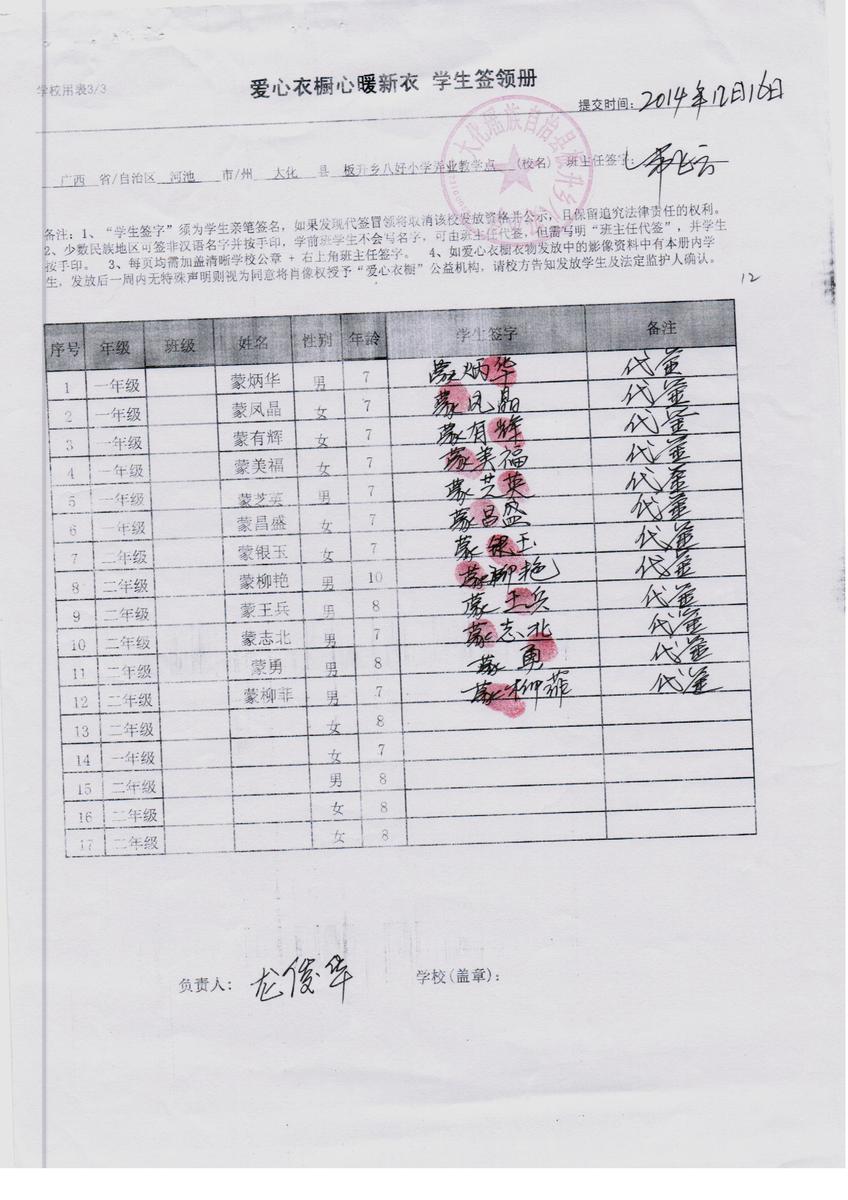 学校用表3/3
爱心衣橱心暖新衣 学生签领册
提交时间：2014年12月16日
广西 省/自治区 河池 市/州 大化 县 板升乡八好小学弄业教学点 (校名) 班主任签字：
备注：1、“学生签字”须为学生亲笔签名，如果发现代签冒领将取消该校发放资格并公示，且保留追究法律责任的权利。
2、少数民族地区可签非汉语名字并按手印，学前班学生不会写名字，可由班主任代签，但需写明“班主任代签”，并学生
按手印。 3、每页均需加盖清晰学校公章 + 右上角班主任签字。 4、如爱心衣橱衣物发放中的影像资料中有本册内学
生，发放后一周内无特殊声明则视为同意将肖像权授予“爱心衣橱”公益机构，请校方告知发放学生及法定监护人确认。
12
序号 年级 班级 姓名 性别 年龄 学生签字 备注
1 一年级 蒙炳华 男 7 蒙炳华 代签
2 一年级 蒙凤晶 女 7 蒙凤晶 代签
3 一年级 蒙有辉 女 7 蒙有辉 代签
4 一年级 蒙美福 女 7 蒙美福 代签
5 一年级 蒙芝英 男 7 蒙芝英 代签
6 一年级 蒙昌盛 女 7 蒙昌盛 代签
7 二年级 蒙银玉 女 7 蒙银玉 代签
8 二年级 蒙柳艳 男 10 蒙柳艳 代签
9 二年级 蒙王兵 男 8 蒙王兵 代签
10 二年级 蒙志北 男 7 蒙志北 代签
11 二年级 蒙勇 男 8 蒙勇 代签
12 二年级 蒙柳菲 男 7 蒙柳菲 代签
13 二年级 女 8
14 一年级 女 7
15 二年级 男 8
16 二年级 女 8
17 二年级 女 8
负责人：龙俊华 学校(盖章)：